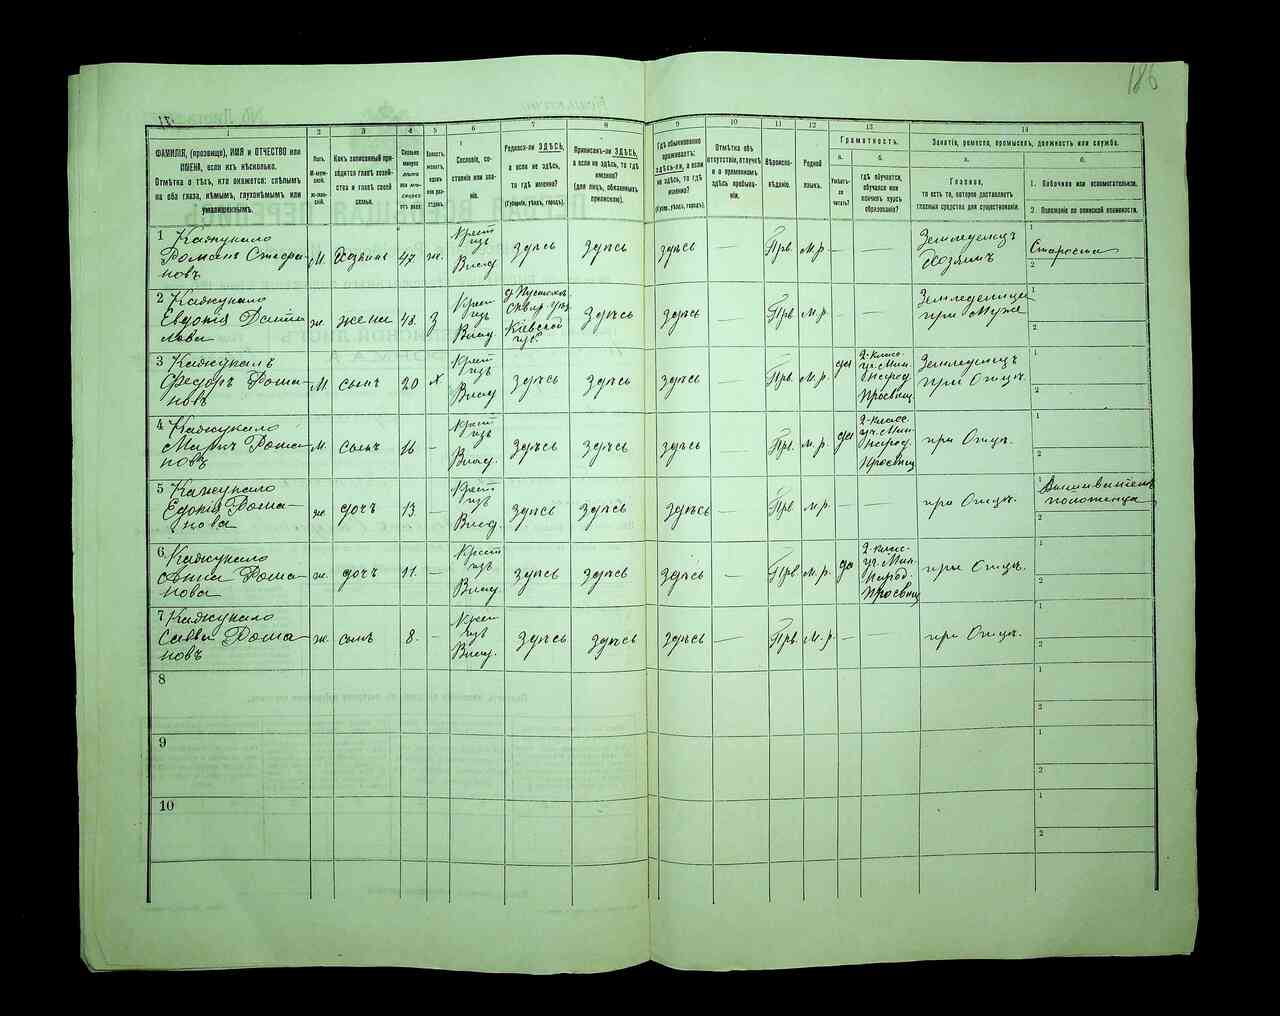 186
1 2 3 4 5 6 7 8 9 10 11 12 13 14
ФАМИЛІЯ, (прозвище), ИМЯ и ОТЧЕСТВО или
ИМЕНА, если ихъ нѣсколько.
Отмѣтка о тѣхъ, кто окажется: слѣпымъ
на оба глаза, нѣмымъ, глухонѣмымъ или
умалишеннымъ.
Какъ записанный при-
ходится главѣ хозяй-
ства и главѣ своей
семьи.
Сословіе, со-
стояніе или зва-
ніе.
Родился-ли ЗДѢСЬ,
а если не здѣсь,
то гдѣ именно?
(Губернія, уѣздъ, городъ).
Приписанъ-ли ЗДѢСЬ,
а если не здѣсь, то гдѣ
именно?
(для лицъ, обязанныхъ
припискою).
Гдѣ обыкновенно
проживаетъ:
здѣсь-ли, а если
не здѣсь, то гдѣ
именно?
(Губерн., уѣздъ, городъ).
Отмѣтка объ
отсутствіи, отлучкѣ
и о временномъ
здѣсь пребыва-
ніи.
Вѣроиспо-
вѣданіе.
Родной
языкъ.
Грамотность.
а. б.
Умѣетъ-
ли
читать?
гдѣ обучается,
обучался или
кончилъ курсъ
образованія?
Занятіе, ремесло, промыселъ, должность или служба.
а. б.
Главное,
то есть то, которое доставляетъ
главныя средства для существованія.
1. Побочное или вспомогательное.
2. Положеніе по воинской повинности.
1 Кажукало
Романъ Стефа
новъ
М. Хозяинъ 47 ж.
Крест
изъ
Влад
здѣсь здѣсь здѣсь — Прв. М.р. — —
Земледелецъ
Хозяинъ
1 Староста
2
2 Кажукало
Евдокія Дани
лова
ж. жена 43. З
Крест
изъ
Влад.
Сквир. уѣз
Кіевской
губ.
здѣсь здѣсь — Прв М.р. — —
Земледелица
при Мужѣ
1
2
3 Кажукалъ
Федоръ Рома-
новъ
М сынъ 20 х
Крест
изъ
Влад
здѣсь здѣсь здѣсь — Прв. М.р. да
2-класс.
уч. Мин.
Народ
Просвищ
Земледелецъ
при Отцѣ.
1
2
4 Кажукало
Рома-
новъ
М. сынъ 16 —
Крест
изъ
Влад.
здѣсь здѣсь здѣсь — Прв. М.р. да
2-класс.
уч. Мин
Народ.
Просвищ
при Отцѣ.
1
2
5 Кажукало
Едокія Рома-
нова
ж дочъ 13 —
Крест
изъ
Влад.
здѣсь здѣсь здѣсь — Прв М.р. — —
при Отцѣ.
1
полотенца
2
6 Кажукало
Анна Рома-
нова
ж. дочъ 11. —
Крест
изъ
Влад
здѣсь здѣсь здѣсь — Прв М.р. да
2-класс-
уч. Мин.
Народ.
Просвищ
при Отцѣ.
1
2
7 Кажукало
Савва Рома-
новъ
ж. сынъ 8. —
Крест
изъ
Влад.
здѣсь здѣсь здѣсь — Прв. М.р. — —
при Отцѣ.
1
2
8
1
2
9
1
2
10
1
2